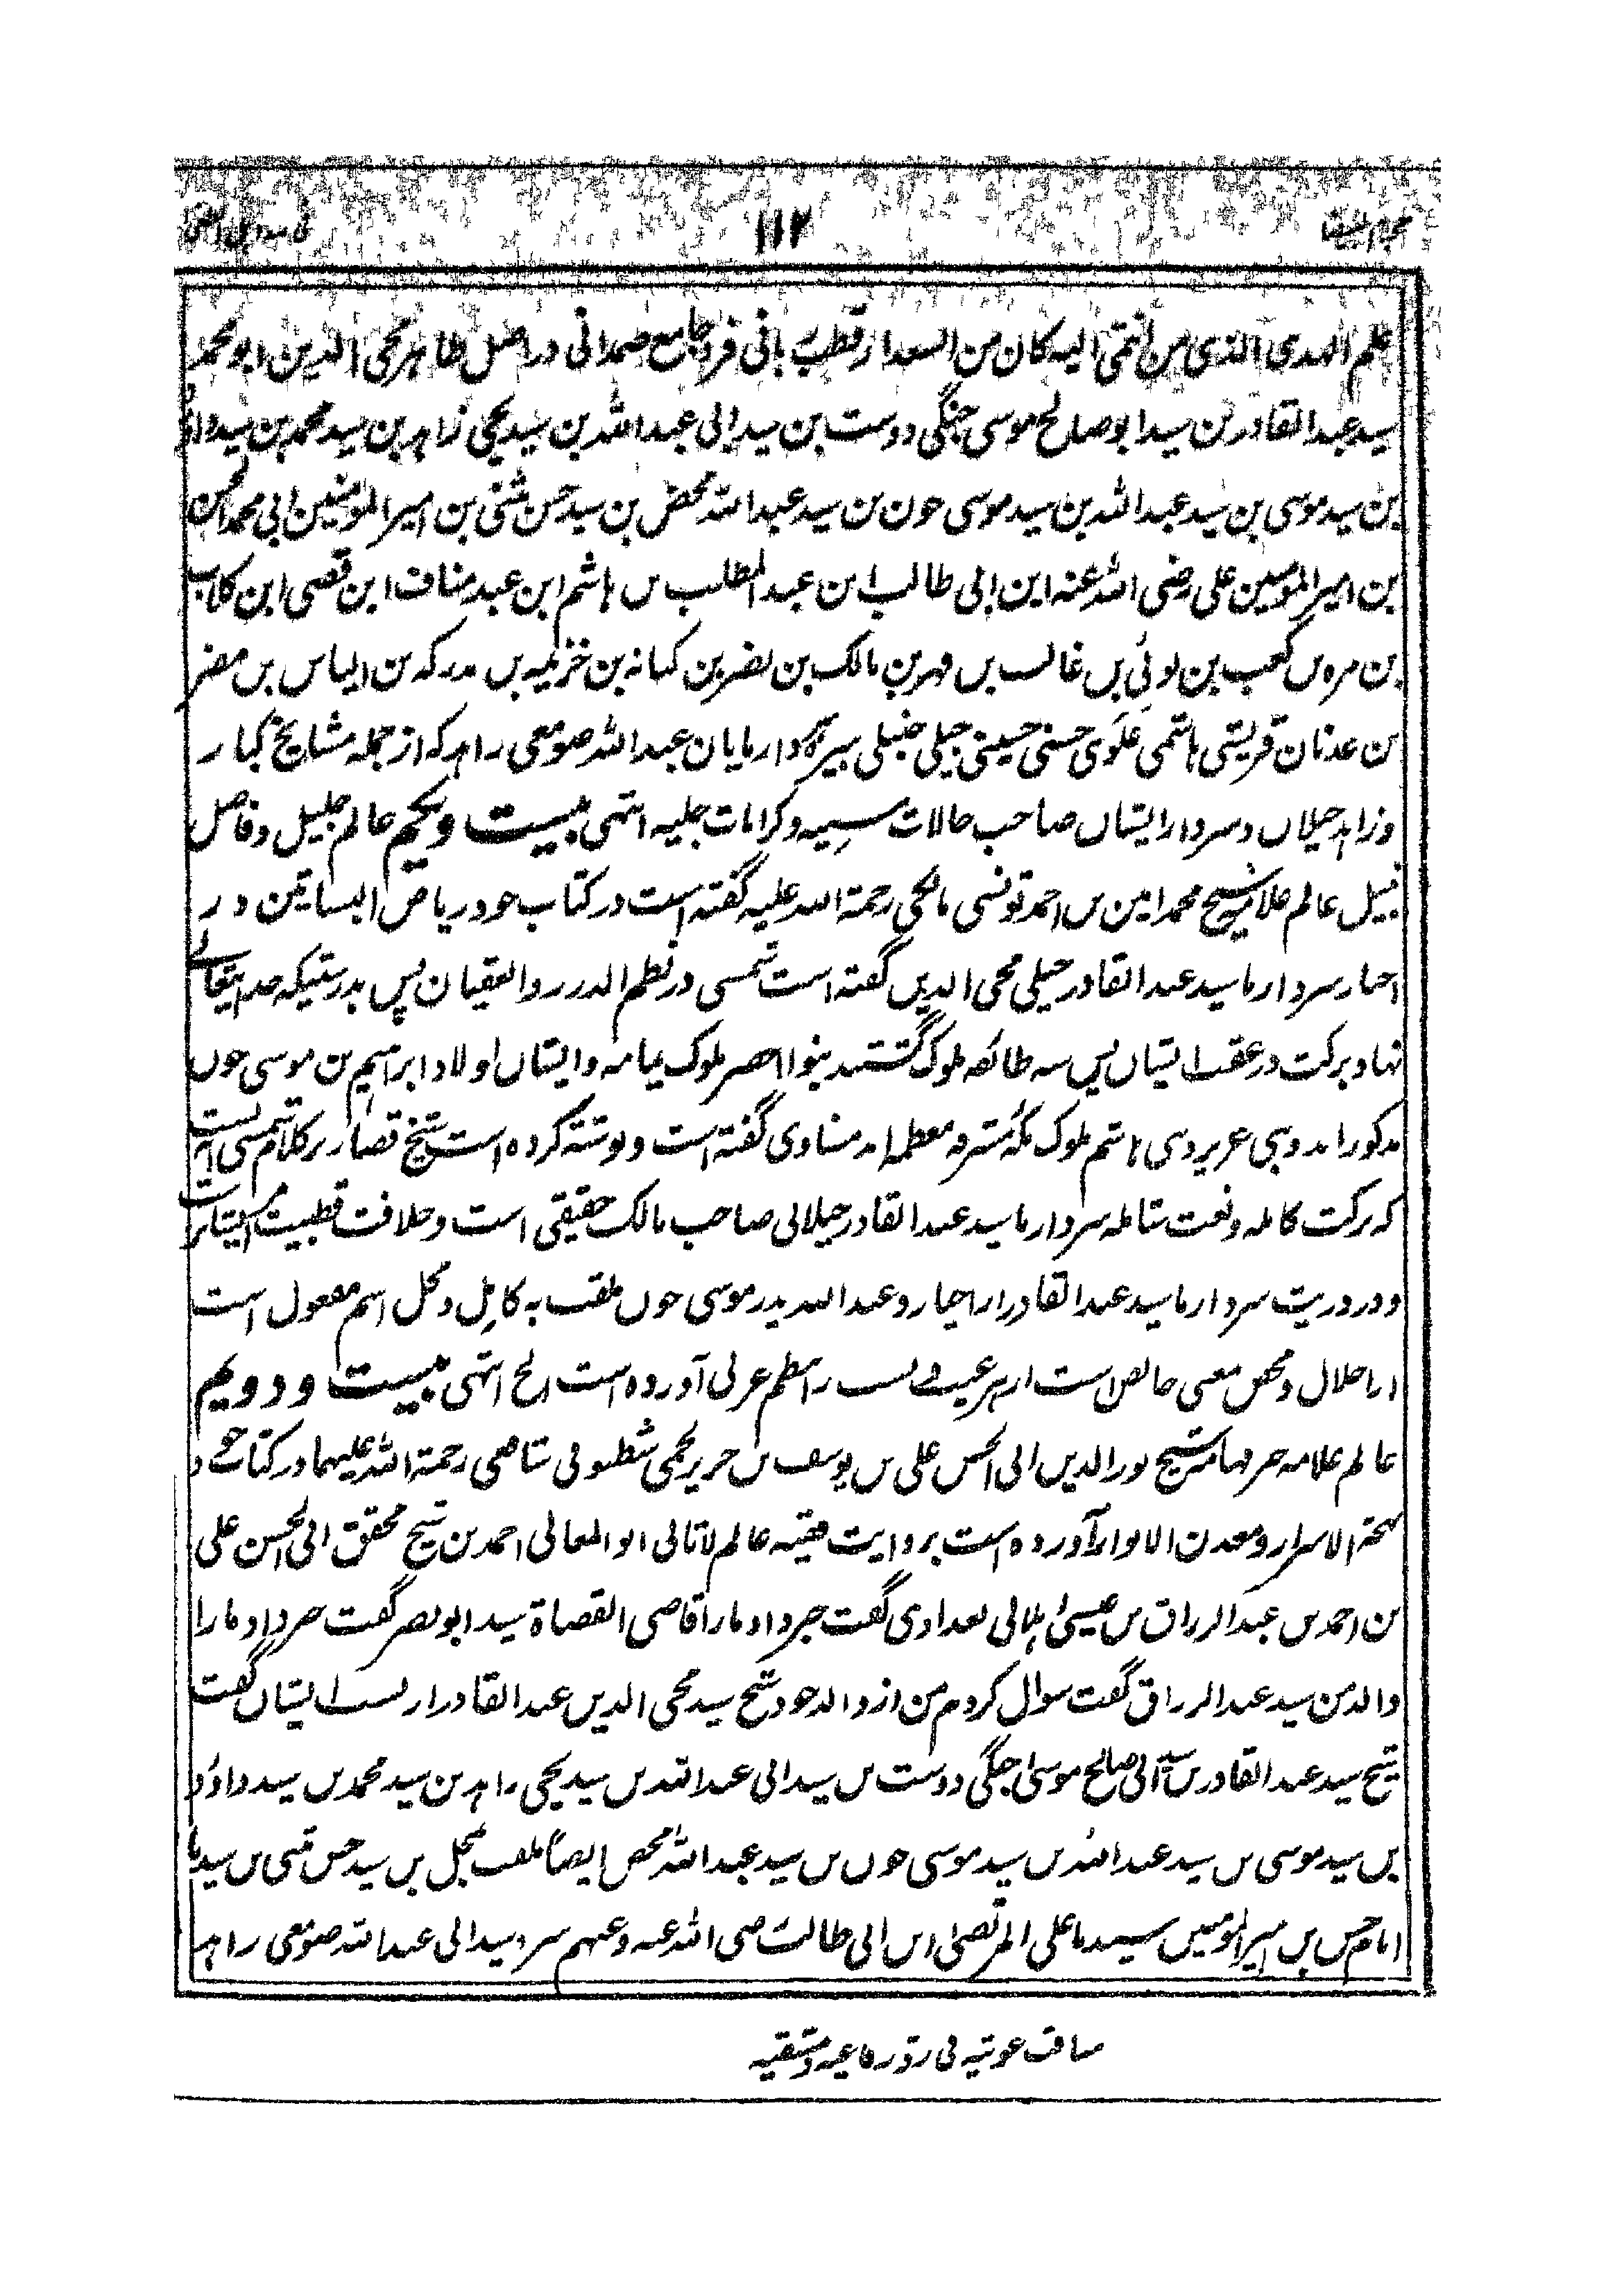 ۱۱۲
علم الهدی الذی من انتمی الیه کان من السعدا قطب ربانی فرد جامع صمدانی در اصل طاهر محی الدین ابو محمد
سید عبدالقادر بن سید ابو صالح موسی جنگی دوست بن سید ابی عبدالله بن سید یحیی زاهد بن سید محمد بن سید داؤد
بن سید موسی بن سید عبدالله بن سید موسی جون بن سید عبدالله محض بن سید حسن مثنی بن امیر المؤمنین ابی محمد الحسن
بن امیر المومنین علی رضی الله عنه ابن ابی طالب ابن عبدالمطلب بن هاشم ابن عبد مناف ابن قصی ابن کلاب
بن مره بن کعب بن لوئی بن غالب بن فهر بن مالک بن نضر بن کنانه بن خزیمه بن مدرکه بن الیاس بن مضر
بن عدنان قریشی هاشمی علوی حسنی حسینی جیلی حنبلی نبیره سردار مایان عبدالله صومعی زاهد که از جمله مشایخ کبار
و زاهد جیلان و سردار ایشان صاحب حالات سنیه و کرامات جلیه انتهی بیست و یکم عالم جلیل و فاضل
نبیل عالم علامه شیخ محمد امین بن احمد تونسی مالکی رحمة الله علیه گفته است در کتاب خود ریاض البساتین در
اخبار سردار ما سید عبدالقادر جیلی محی الدین گفته است شمسی در نظم الدرر والعقیان پس بدرستیکه خدایتعالے
نهاد برکت در عقب ایشان پس سه طائفه ملوک گشتند بنو الاخضر ملوک یمامه و ایشان اولاد ابراهیم بن موسی جون
مذکور اند و بنی عزیز و بنی هاشم ملوک مکه مشرفه معظمه اند مناوی گفته است و نوشته کرده است شیخ قصار بر کلام شمسی
که برکت کامله و نعمت شامله سردار ما سید عبدالقادر جیلانی صاحب مالک حقیقی است و خلافت قطبیت
و در ذریت سردار ما سید عبدالقادر را اختیار و عبدالله پدر موسی جون ملقب به کامل و محل اسم مفعول است
از احلال و محض بمعنی خالص است از هر عیبے نسب را بنظم عربی آورده است الخ انتهی بیست و دویم
عالم علامه شیخ نورالدین ابی الحسن علی بن یوسف بن جریر لخمی شطنوفی شافعی رحمة الله علیهما در کتاب خود
بهجة الاسرار و معدن الانوار آورده است بروایت فقیه عالم لاثانی ابو المعالی احمد بن شیخ محقق ابی الحسن علی
بن احمد بن عبدالرزاق بن عیسی هلالی بغدادی گفت خبر داد ما را قاضی القضاة سید ابو نصر گفت خبر داد ما را
والد من سید عبدالرزاق گفت سوال کردم من از والد خود شیخ سید محی الدین عبدالقادر از نسب ایشان گفت
شیخ سید عبدالقادر بن سید ابی صالح موسی جنگی دوست بن سید ابی عبدالله بن سید یحیی زاهد بن سید محمد بن سید داؤد
بن سید موسی بن سید عبدالله بن سید موسی جون بن سید عبدالله محض ایضا ملقب بمجل بن سید حسن مثنی بن سیدنا
امام حسن بن امیر المومنین سیدنا علی المرتضی ابن ابی طالب رضی الله عنه و عنهم سر سید ابی عبدالله صومعی زاهد